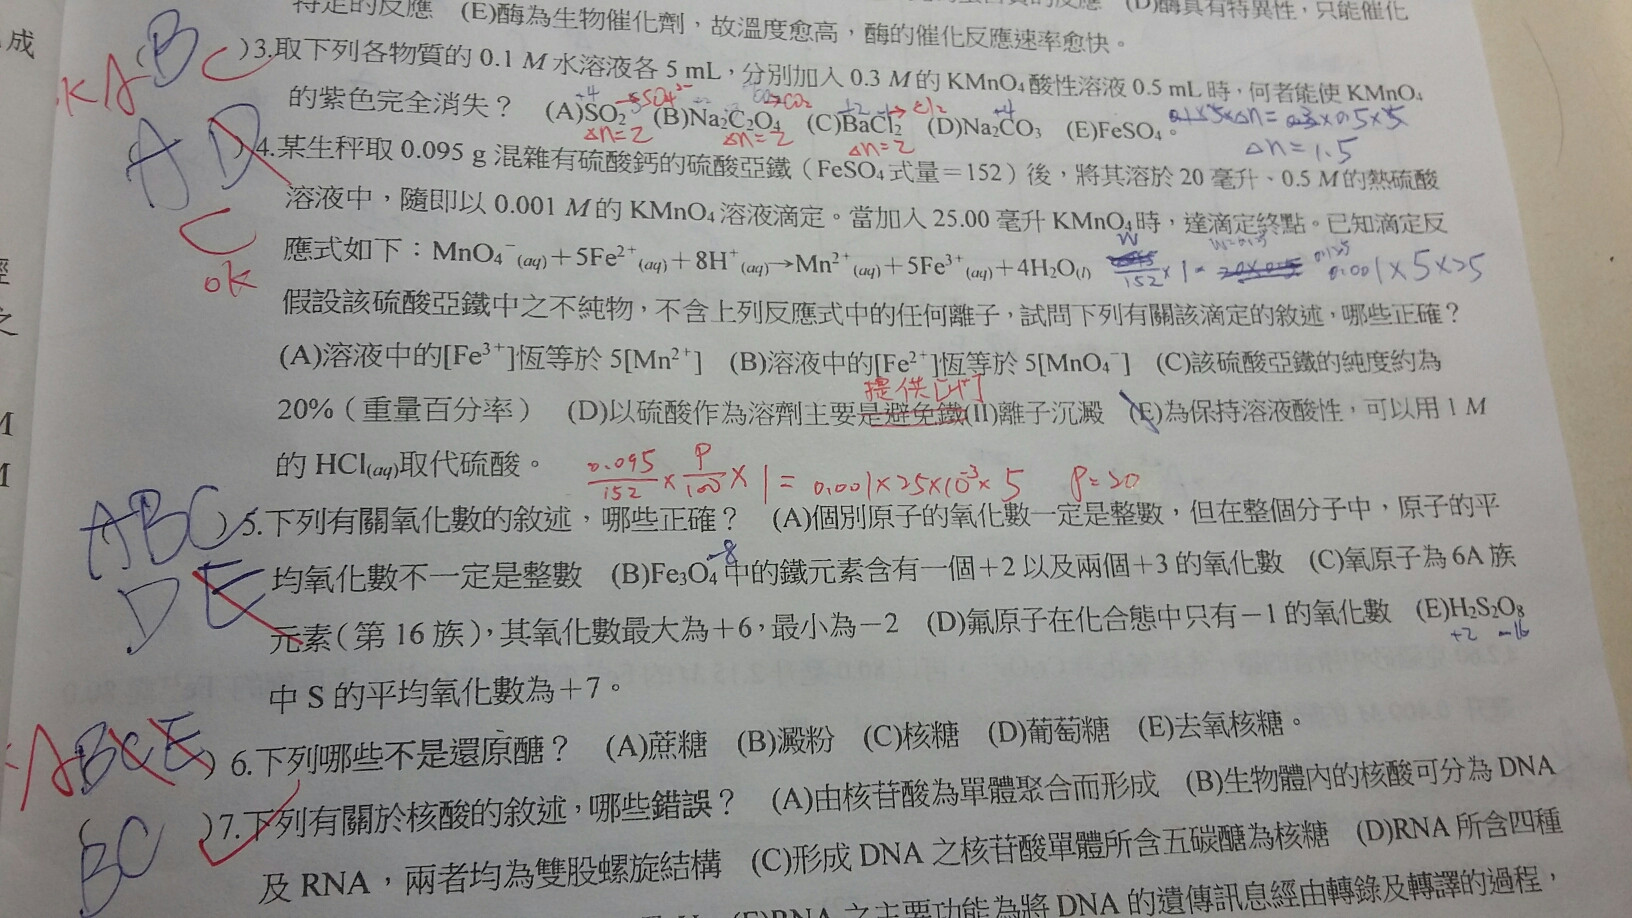 特定的反應 (E)酶為生物催化劑，故溫度愈高，酶的催化反應速率愈快。 (D)酶具有特異性，只能催化
成
B
KA C )3.取下列各物質的 0.1 M 水溶液各 5 mL，分別加入 0.3 M 的 KMnO₄ 酸性溶液 0.5 mL 時，何者能使 KMnO₄
+4 →SO4²⁻ →CO2 +2 -1→Cl2 +4
的紫色完全消失？ (A)SO₂ (B)Na₂C₂O₄ (C)BaCl₂ (D)Na₂CO₃ (E)FeSO₄。
Δn=2 Δn=2 Δn=2
0.1×5×Δn=0.3×0.5×5
Δn=1.5
AD )4.某生秤取 0.095 g 混雜有硫酸鈣的硫酸亞鐵（FeSO₄ 式量＝152）後，將其溶於 20 毫升、0.5 M 的熱硫酸
C 溶液中，隨即以 0.001 M 的 KMnO₄ 溶液滴定。當加入 25.00 毫升 KMnO₄ 時，達滴定終點。已知滴定反
ok 應式如下：MnO₄⁻(aq)＋5Fe²⁺(aq)＋8H⁺(aq)→Mn²⁺(aq)＋5Fe³⁺(aq)＋4H₂O(l)
W/152×1= 0.001×5×25
假設該硫酸亞鐵中之不純物，不含上列反應式中的任何離子，試問下列有關該滴定的敘述，哪些正確？
(A)溶液中的[Fe³⁺]恆等於 5[Mn²⁺] (B)溶液中的[Fe²⁺]恆等於 5[MnO₄⁻] (C)該硫酸亞鐵的純度約為
提供[H⁺]
20%（重量百分率） (D)以硫酸作為溶劑主要是避免鐵(II)離子沉澱 (E)為保持溶液酸性，可以用 1 M
的 HCl(aq)取代硫酸。
0.095/152×P/100×1=0.001×25×10⁻³×5 P=20
ABC )5.下列有關氧化數的敘述，哪些正確？ (A)個別原子的氧化數一定是整數，但在整個分子中，原子的平
-8
DE 均氧化數不一定是整數 (B)Fe₃O₄ 中的鐵元素含有一個＋2 以及兩個＋3 的氧化數 (C)氧原子為 6A 族
元素（第 16 族），其氧化數最大為＋6，最小為－2 (D)氟原子在化合態中只有－1 的氧化數 (E)H₂S₂O₈
+2 -16
中 S 的平均氧化數為＋7。
ABCE )6.下列哪些不是還原醣？ (A)蔗糖 (B)澱粉 (C)核糖 (D)葡萄糖 (E)去氧核糖。
(BC )7.下列有關於核酸的敘述，哪些錯誤？ (A)由核苷酸為單體聚合而形成 (B)生物體內的核酸可分為 DNA
及 RNA，兩者均為雙股螺旋結構 (C)形成 DNA 之核苷酸單體所含五碳醣為核糖 (D)RNA 所含四種
(E)RNA 之主要功能為將 DNA 的遺傳訊息經由轉錄及轉譯的過程，